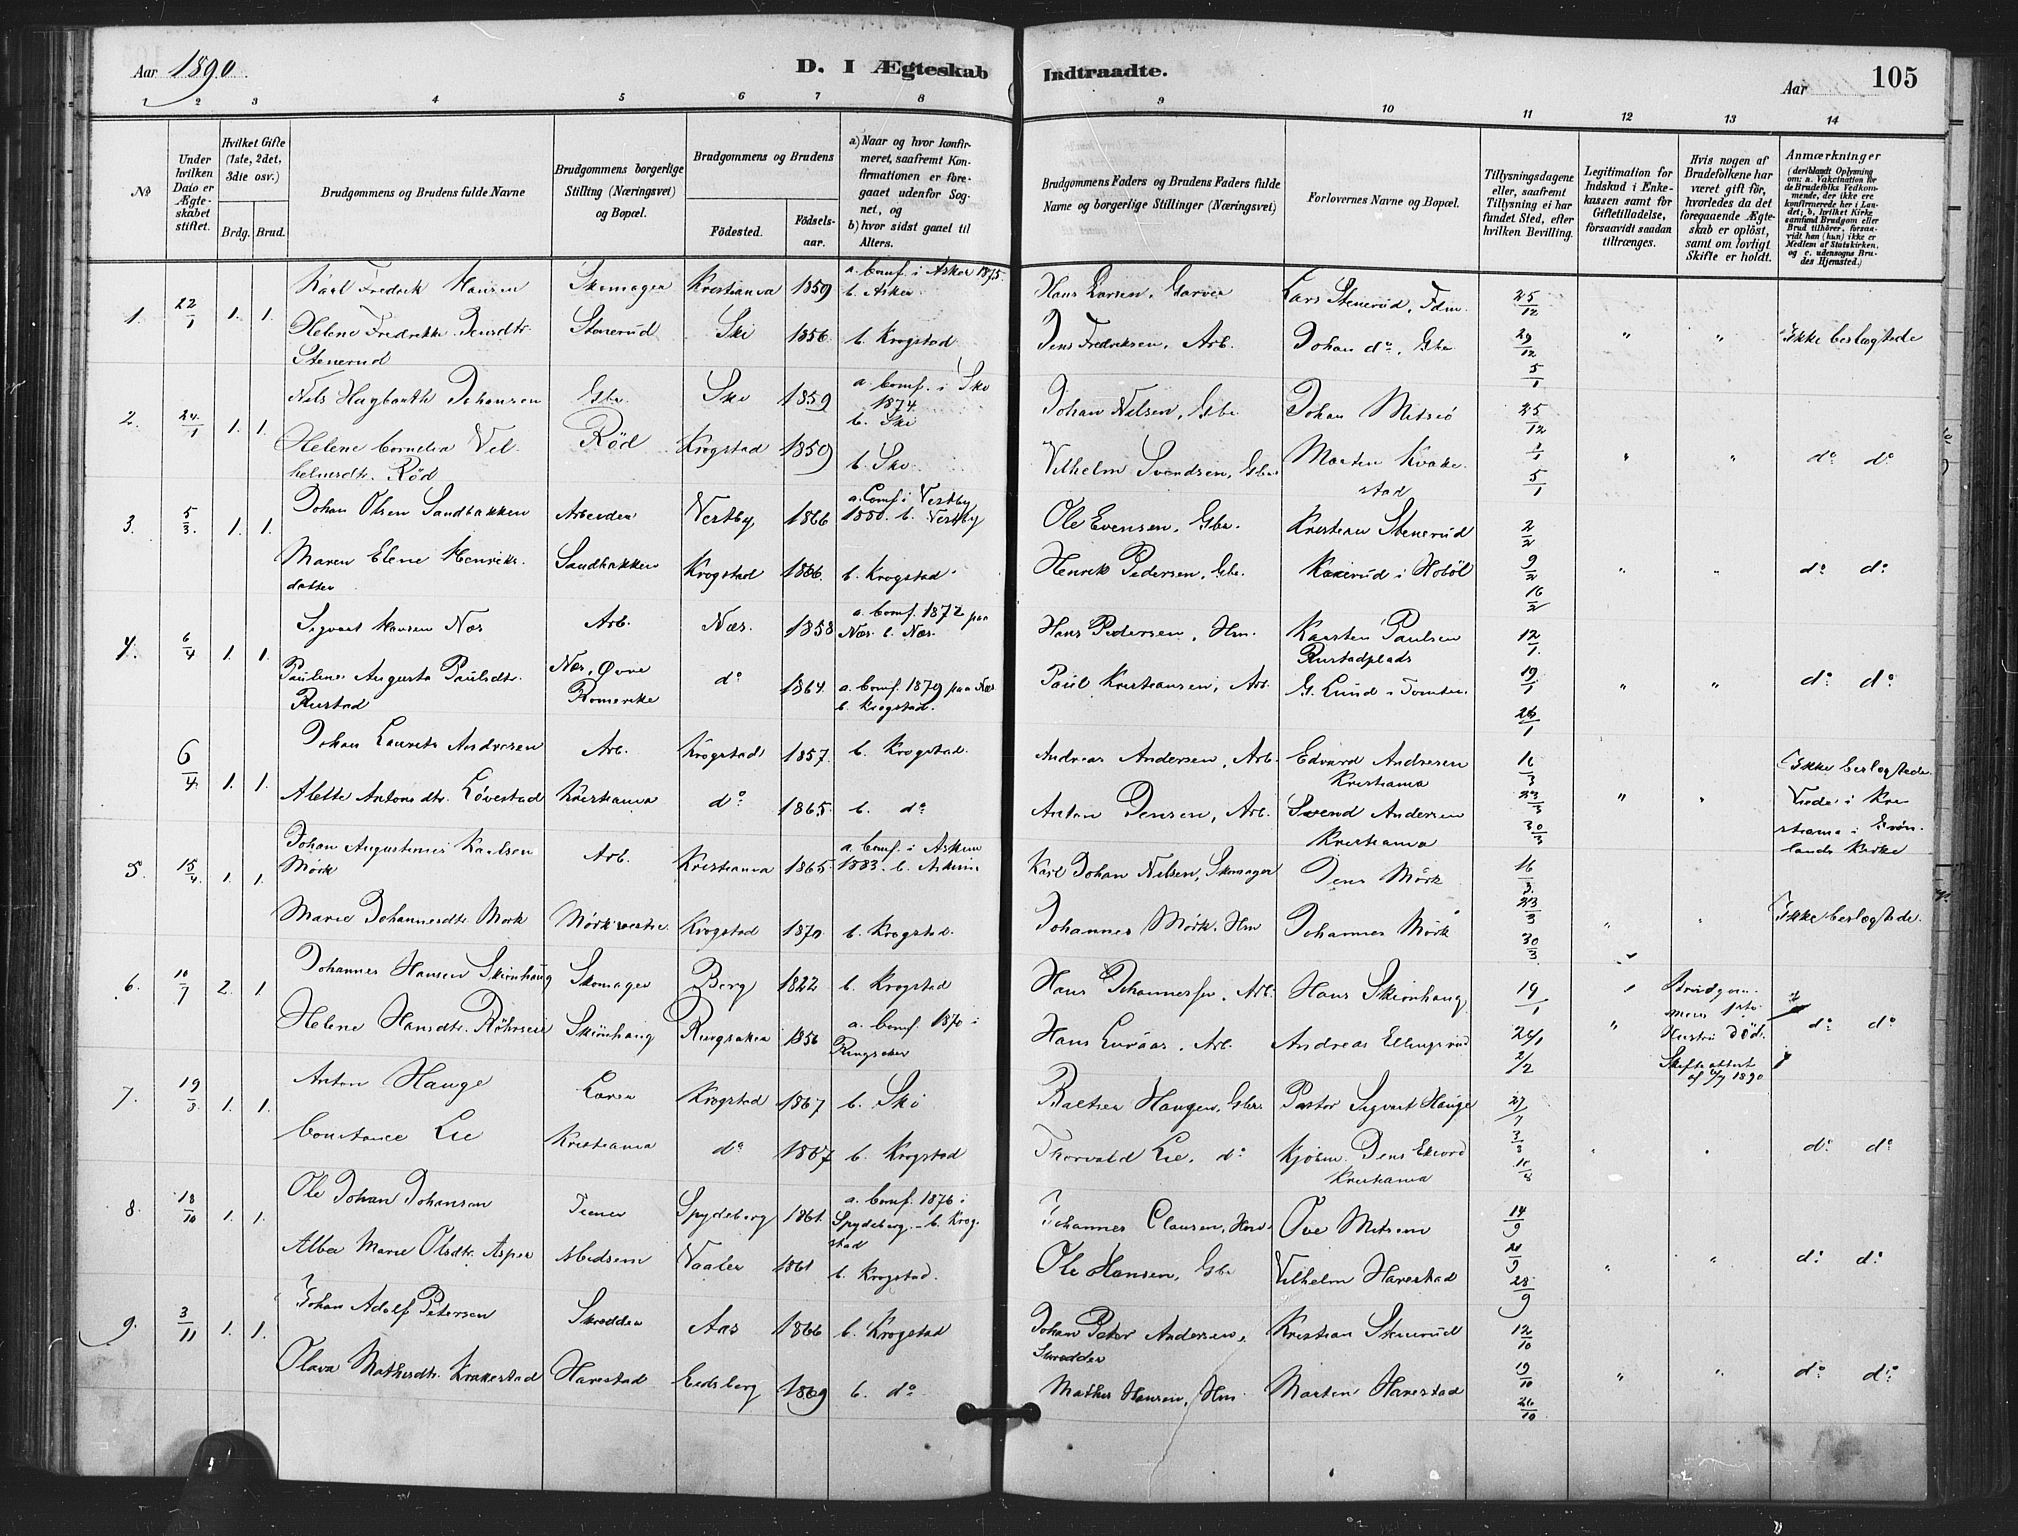 Aar 1890.
D. I Ægteskab Indtraadte.
Aar
105
1 2 3 4 5 6 7 8 9 10 11 12 13 14
No
Under hvilken Dato er Ægteskabet stiftet.
Hvilket Gifte (1ste, 2det, 3die osv.)
Brdg. Brud.
Brudgommens og Brudens fulde Navne
Brudgommens borgerlige Stilling (Næringsvei) og Bopæl.
Brudgommens og Brudens
Fødested. Fødselsaar.
a) Naar og hvor konfirmeret, saafremt Konfirmationen er foregaaet udenfor Sognet, og
b) hvor sidst gaaet til Alters.
Brudgommens Faders og Brudens Faders fulde Navne og borgerlige Stillinger (Næringsvei)
Forlovernes Navne og Bopæl.
Tillysningsdagene eller, saafremt Tillysning ei har fundet Sted, efter hvilken Bevilling.
Legitimation for Indskud i Enkekassen samt for Giftetilladelse, forsaavidt saadan tiltrænges.
Hvis nogen af Brudefolkene har været gift før, hvorledes da det foregaaende Ægteskab er opløst, samt om lovligt Skifte er holdt.
Anmærkninger (deriblandt Oplysning om: a. Vakcination for de Brudefolks Vedkommende, der ikke ere konfirmerede her i Landet; b. hvilket Kirkesamfund Brudgom eller Brud tilhører, forsaavidt han (hun) ikke er Medlem af Statskirken, og c. udensogns Brudes Hjemsted.)
1. 22/1 1. 1. Karl Fredrik Hansen Skomager Kristiania 1859 a. Comf. i Asker 1875. b. Asker Hans Larsen, Garver Lars Stenerud, Fdm. 25/12
Helene Fredrikke Jensdtr. Stenerud Stenerud Ski 1856 b. Krogstad Jens Fredriksen, Arb. Johan do, Gbr. 29/12 5/1 " " Ikke beslægtede
2. 24/1 1. 1. Nils Hagbarth Johansen Gbr. Ski 1859 a. Comf. i Ski 1874. b. Ski Johan Nilsen, Gbr. Johan 25/12
Helene Cornelia Vilhelmsdtr. Rød Rød Krogstad 1859 b. Ski Vilhelm Svendsen, Gbr. Marten Krakestad 1/1 5/1 " " do do
3. 5/3. 1. 1. Johan Olsen Sandbakken Arbeider Vestby 1866 a. Comf. i Vestby 1880. b. Vestby Ole Evensen, Gbr. Kristian Stenerud 2/2
Maren Elene Henriksdatter Sandbakken Krogstad 1866. b. Krogstad. Henrik Pedersen, Gbr. i Hobøl 9/2 16/2 " " do do
4. 6/4 1. 1. Sigvart Hansen Næs Arb. Næs. 1858 a. Comf. 1872 paa Næs. b. Næs. Hans Pedersen, Hm. Karsten Paulsen Rustadplads 12/1.
Pauline Augusta Paulsdtr. Rustad Næs, Øvre Romerike do 1864. a. Comf. 1879 paa Næs b. Krogstad. Paul Kristiansen, Arb. G. Lund i Tomter. 19/1 26/1 " " do do
6/4 1. 1. Johan Laurits Andresen Arb. Krogstad 1857. b. Krogstad. Andreas Andersen, Arb. Edvard Andresen Kristiania 16/3
Alette Antonsdtr. Løvestad Kristiania do 1865 b. do Anton Jensen, Arb. Svend Andersen Kristiania 23/3 30/3 " " Ikke beslægtede. Viede i Kristiania i Grønlands Kirke
5. 15/4. 1. 1. Johan Augustinus Karlsen Mørk Arb. Kristiania 1865 a. Comf. i Askim 1883. b. Askim Karl Johan Nilsen, Skomager Jens Mørk 16/3.
Marie Johannesdtr. Mørk Mørk vestre Krogstad 1870. b. Krogstad. Johannes Mørk, Hm Johannes Mørk 23/3 30/3 " " Ikke beslægtede.
6. 10/7 2. 1. Johannes Hansen Skiønhaug Skomager Berg 1822 b. Krogstad Hans Johannessen, Arb. Hans Skiønhaug 19/1
Helene Hansdtr. Skiønhaug Ringsaker 1856 a. Comf. 1870 i Ringsaker Hans Arb. Andreas Ellingsrud 26/1 2/2 " Brudgommens første Hustru død. Skifteattest af 1890 do do
7. 19/8. 1. 1. Anton Hauge Krogstad 1867 b. Ski Baltser Haugen, Gbr. Pastor Sigvart Hauge 27/7
Constance Lie Kristiania do 1867 b. Krogstad Thorvald Lie, do Kristiania 3/8 10/8 " " do do
8. 18/10 1. 1. Ole Johan Johansen Tiener Spydeberg 1861. a. Comf. 1876 i Spydeberg. – b. Krogstad Johannes Clausen, Hm. Ove Mitsem 14/9
Alba Marie Olsdtr. Asper Midsem Vaaler 1861 b. Krogstad. Ole Hansen, Gbr Vilhelm Harestad 21/9 28/9 " " do do
9. 3/11 1. 1. Johan Adolf Petersen Skredder Aas 1866 b. Krogstad Johan Peter Andersen, Skredder Kristian Stenerud 12/10
Olava Mathisdtr. Krakestad Harestad Eidsberg 1869 b. do Mathis Hansen, Hm. Marten Harestad 19/10 26/10 " " do do